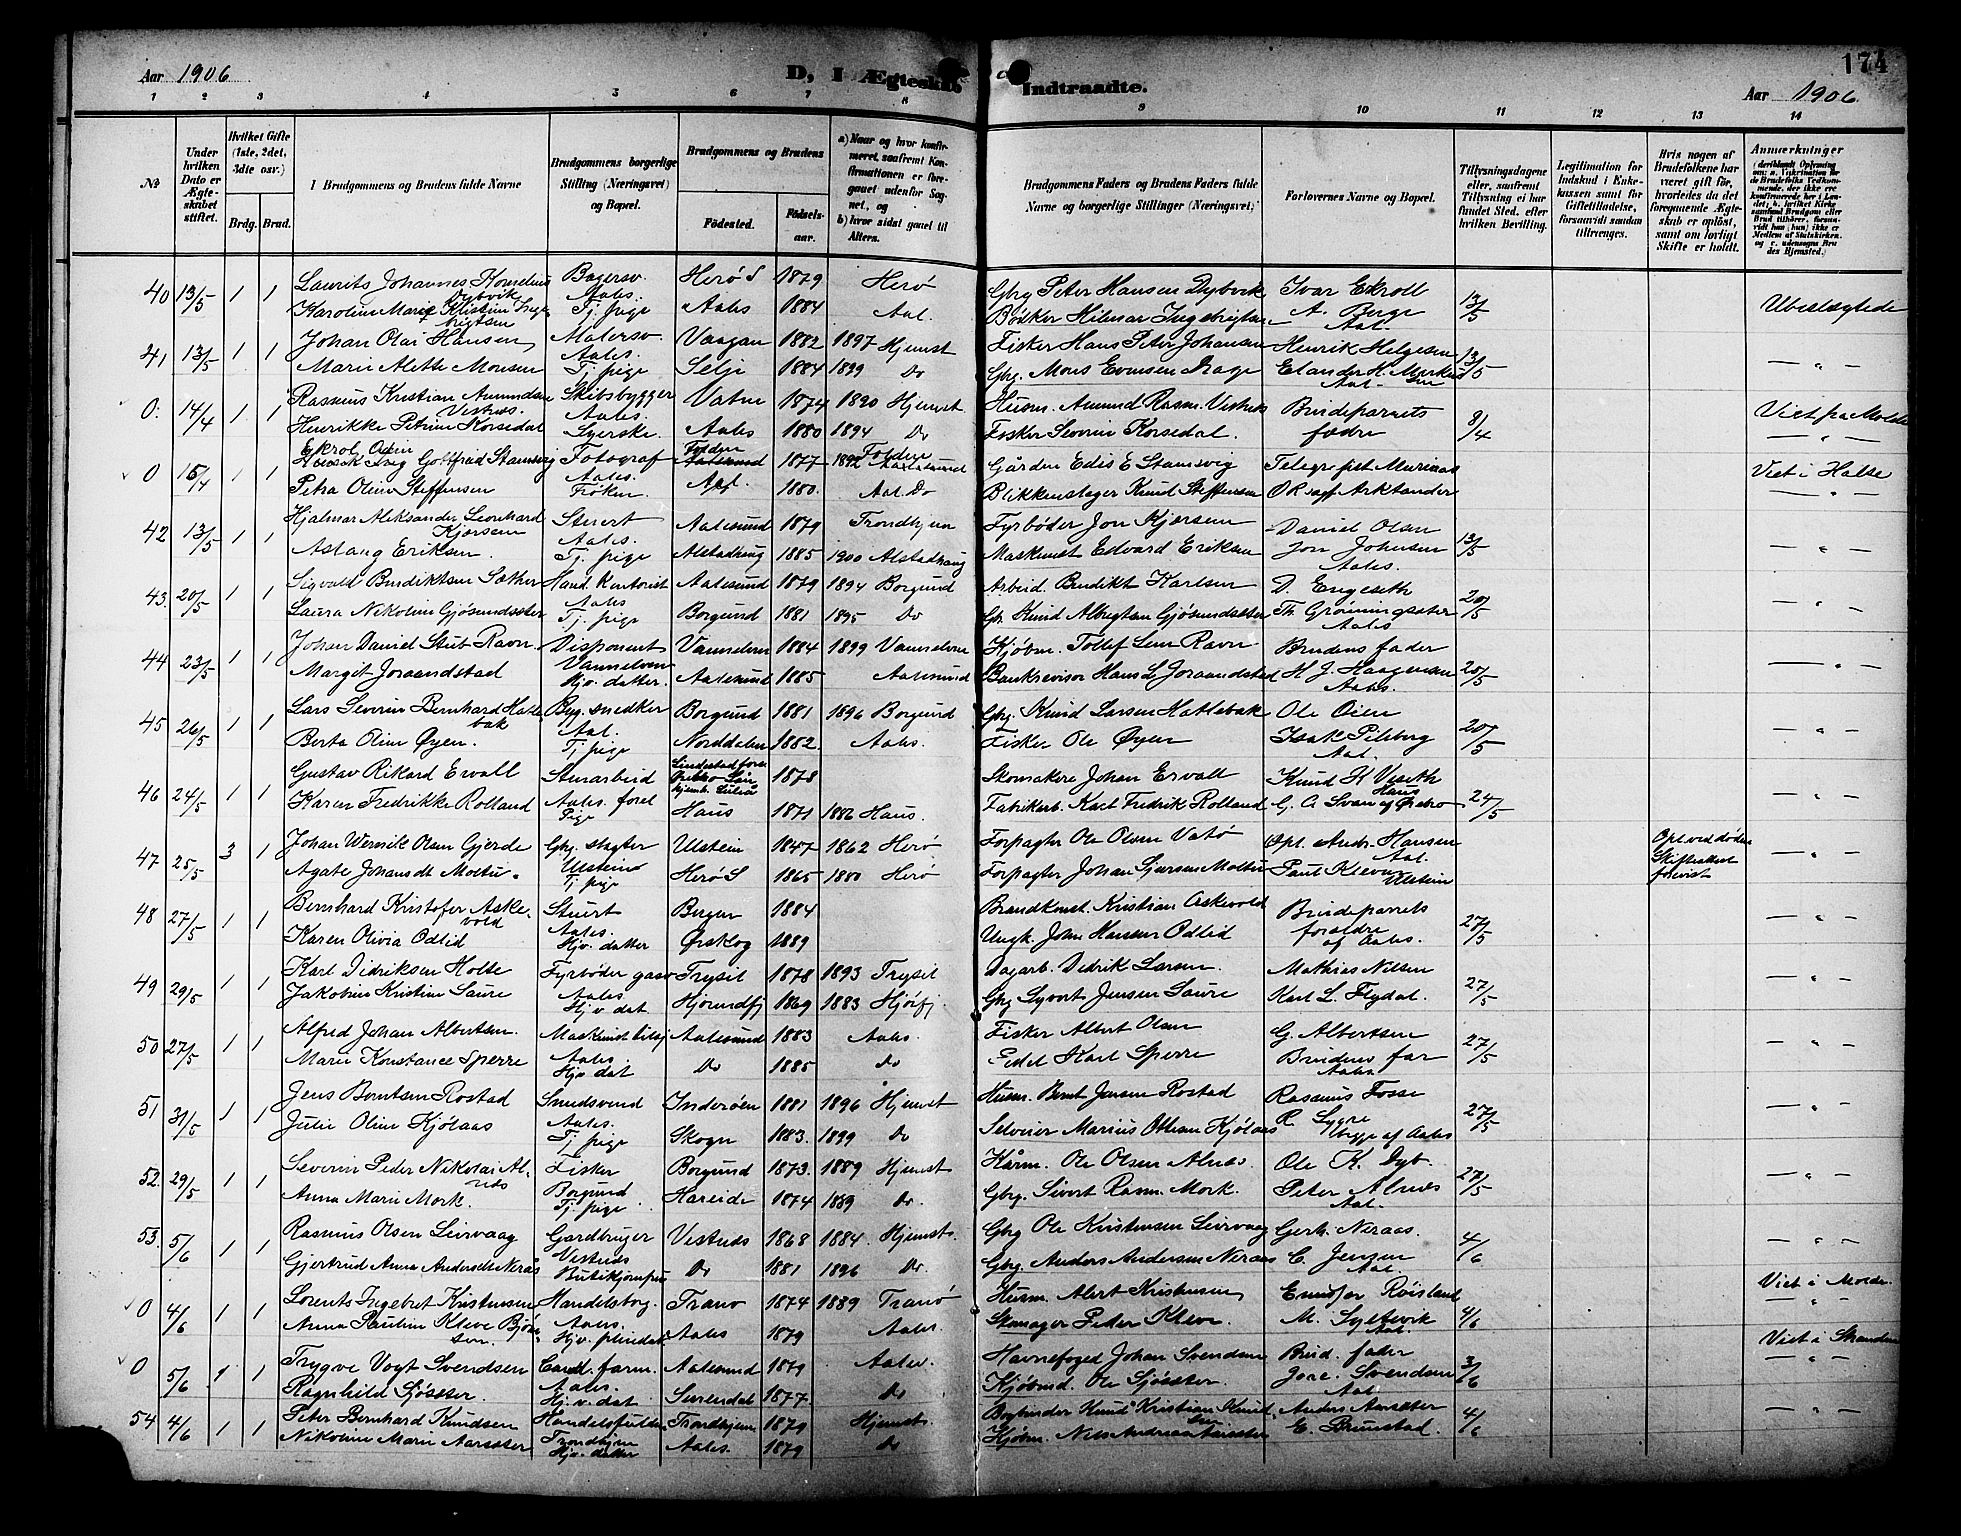 Aar 1906
D, I Ægteskab Indtraadte.
174
Aar 1906
1 2 3 4 5 6 7 8 9 10 11 12 13 14
No.
Under hvilken Dato er Ægteskabet stiftet.
Hvilket Gifte (1ste, 2det, 3dte osv.)
Brdg. Brud.
I Brudgommens og Brudens fulde Navne
Brudgommens borgerlige Stilling (Næringsvei) og Bopæl.
Brudgommens og Brudens
Fødested.
Fødselsaar.
a) Naar og hvor konfirmeret, saafremt Konfirmationen er foregaaet udenfor Sognet, og
b) hvor sidst gaaet til Alters.
Brudgommens Faders og Brudens Faders fulde Navne og borgerlige Stillinger (Næringsvei).
Forlovernes Navne og Bopæl.
Tillysningsdagene eller, saafremt Tillysning ei har fundet Sted, efter hvilken Bevilling.
Legitimation for Indskud i Enkekassen samt for Giftetilladelse, forsaavidt saadan tiltrænges.
Hvis nogen af Brudefolkene har været gift før, hvorledes da det foregaaende Ægteskab er opløst, samt om lovligt Skifte er holdt.
Anmærkninger
40 13/5 1 1 Laurits Johannes Kornelius Dybvik Bagersv. Aales. Herø S 1879 Herø Gbrg Peter Hansen Dybvik Ivar Ekroll 13/5 Ubeslægtede
Karoline Marie Kristine Ingebrigtsen Tj. pige Aales 1884 Aal. Bødker Hilmar Ingebrigtsen A. Berge Aal.
41 13/5 1 1 Johan Olai Hansen Malersv. Aales. Vaagan 1882 1897 Hjemst Fisker Hans Peter Johansen Henrik Helgesen 13/5 — " —
Marie Alette Monsen Tj. pige Selje 1884 1899 Do Gbrg. Mons Evensen Drage Aal.
0. 14/4 1 1 Rasmus Kristian Amundsen Vestnes. Skibsbygger Aales. Vatne 1874 1890 Hjemst Husm. Amund Rasm. Vestnes Brudeparrets fædre 8/4 Viet paa Molde
Henrikke Petrine Korsedal Syerske. Aales 1880 1894 Do Fisker Severin Korsedal. — " —
0 16/4 1 1 Gottfrid Stamsvig Fotograf Aales. Folden 1877 1892 Folden Gården Edis E Stamsvig Telegrafist Viet i Halse
Petra Oline Steffensen Frøken. Aal. 1880. Aal. Do Blikkenslager Knud Steffensen OR sagf Arktander — " —
42 13/5 1 1 Hjalmar Aleksander Leonhard Kjørsem Stuert Aales. Aalesund 1879 Trondhjem Fyrbøder Jon Kjørsem Daniel Olsen 13/5 — " —
Aslaug Eriksen. Tj. pige Alstadhaug 1885 1900 Alstadhaug Maskinist Edvard Eriksen Jon Johersen Aales.
43. 20/5 1 1 Sigvald Benediktsen Sæther Hand. Kontorist Aales Aalesund 1879 1894 Borgund Arbeid. Benedikt Karlsen D. Engeseth 20/5 — " —
Laura Nikoline Gjøsundsæter Tj. pige Borgund 1881 1895 Do Gbr. Knud Albrigtsen Gjøsundsæter Th. Grønningsæter Aales
44 23/5 1 1 Johan Daniel Stub Ravn. Disponent Vannelven Vannelven 1884 1899 Vannelven Kjøbm. Tollef Lem Ravn Brudens fader 20/5 — " —
Margit Joraandstad Hjv. datter. Aalesund 1885 Aalesund Bankrevisor Hans L Joraandstad H. J. Haagensen Aales.
45 26/5 1 1 Lars Severin Bernhard Hatlebak Byg. snedker Aal. Borgund 1881 1896 Borgund Gbrg. Knud Larsen Hatlebak Ole Øien 20/5 — " —
Berta Oline Øyen. Tj. pige Norddalen 1882. Aales. Fisker Ole Øyen Isak Pilskog Aal.
46 24/5 1 1 Gustav Rikard Ervall Stenarbeid Aales. 1878 Skomakere Johan Ervall Knud K Viseth Haus 24/5 — " —
Karen Fredrikke Rolland Pige Haus 1871 1886 Haus. Fabrikarb. Karl Fredrik Rolland G. A. Svan af Ørebro
47 25/5 3 1 Johan Wernik Olsen Gjerde Gbrg. slagter Ulstein Ulstein 1847 1862 Herø Forpagter Ole Olsen Vatø Opt. Andr. Hansen Aal. Opl. ved døden Skifteattest forevist — " —
Agate Johansdt Moltu. Tj. pige Herø S 1865 1880 Herø Forpagter Johan Sjursen Moltu Paul Kleven Ulstein
48 27/5 1 1 Bernhard Kristofer Askevold Stuert Aales. Bergen 1884 Brandkonst. Kristian Askevold Brudeparrets forældre af Aales. 27/5 — " —
Karen Olivia Ødlid Hjv. datter Ørskog 1889 Ungk. John Hansen Ødlid
49 29/5 1 1 Karl Didriksen Holte Fyrbøder gasv Aales Trysil 1878 1893 Trysil Dagarb. Didrik Larsen. Mathias Nilsen 27/5 — " —
Jakobine Kristine Saure Hjv dat Hjørundfj 1869 1883 Hjørfj. Gbrg Syvert Jensen Saure Karl L. Flydal.
50 27/5 1 1 Alfred Johan Albertsen. Aales. Aalesund 1883 Aales. Fisker Albert Olsen G. Albertsen 27/5 — " —
Marie Konstance Sperre Hjv dat Do 1885 Do Eidet Karl Sperre Brudens far Aales.
51 31/5 1 1 Jens Berntsen Rostad Smedsvend Aales. Inderøen 1881 1896 Hjemst Husm. Bernt Jensen Rostad Rasmus Fosse 27/5 — " —
Julie Oline Kjølaas Tj. pige Skogn 1883. 1899 Do Selveier Marius Ottesen Kjølaas R. Lygre begge af Aales
52. 29/5 1 1 Severin Peder Nikolai Alnæs Fisker Borgund Borgund 1873. 1889 Hjemst Kårm. Ole Olsen Alnæs. Ole K. Dyb. 27/5 — " —
Anna Marie Mork. Tj. pige Hareide 1874 1889 Do Gbrg. Sivert Rasm. Mork. Peter Alnæs Aal.
53. 5/6 1 1 Rasmus Olsen Leirvaag Gardbruger Vestnæs Vestnæs 1868 1884. Hjemst. Gbrg Ole Kristensen Leirvaag Gertr. Neraas. 4/6 — " —
Gjertrud Anna Andersdt Neraas Do 1881 1896 Do. Gbrg. Anders Andersen Neraas C. Jensen Aal.
0 4/6 1 1 Lorents Ingebret Kristensen Handelsborg. Aales. Tranø 1874 1889 Tranø Husm. Alert Kristensen Røisland 4/6 Viet i Molde.
Anna Pauline Kleve Bjønsen. Aales 1879 Aales. Skomager Peder Kleve. M. Syltevik Aal. — " —
0 5/6 1 1 Trygve Vogt Svendsen Cand. farm. Aales. Aalesund 1879 Aales. Havnefoged Johan Svendsen Brud. fader 3/6 Viet i Stranden
Ragnhild Sjøseter. Hj. v. dat Surendal 1877. Do Kjøbmd. Ole Sjøseter. Joac. Svendsen Aal. — " —
54 4/6 1 1 Peter Bernhard Knudsen Handelsfuldm. Trondhjem Trondhjem 1879 Hjemst. Bogbinder Knud Kristian Knudsen Anders Aarsæter 4/6 — " —
Nikoline Marie Aarsæter Hjv. datter Aales. 1879 Do Kjøbm. Nils Andreas Aarsæter E. Brunstad.